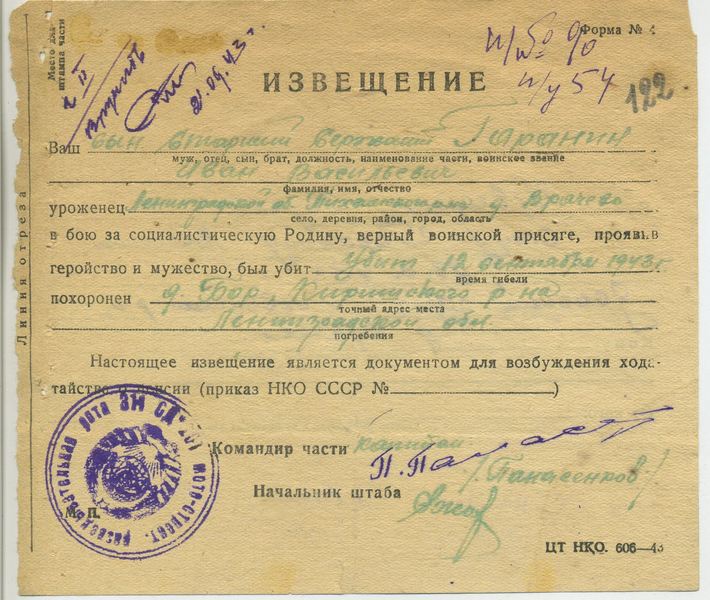 Место для штампа части
Форма № 4
п/п № 90
п/у 54
122
21.09.43 г.
ИЗВЕЩЕНИЕ
Ваш сын старший сержант Гаранин
муж, отец, сын, брат, должность, наименование части, воинское звание
Иван Васильевич
фамилия, имя, отчество
уроженец Ленинградской об. д. Врачево
село, деревня, район, город, область
в бою за социалистическую Родину, верный воинской присяге, прояв в
геройство и мужество, был убит убит 12 сентября 1943 г
время гибели
похоронен д. Бор, Киришского р-на
точный адрес места
Ленинградской обл.
погребения
Настоящее извещение является документом для возбуждения хода-
тайства о пенсии (приказ НКО СССР № )
Командир части капитан
П. Панасенков
Начальник штаба
М. П.
разведывательная рота мото-стрелк.
Линия отреза
ЦТ НКО. 606—43